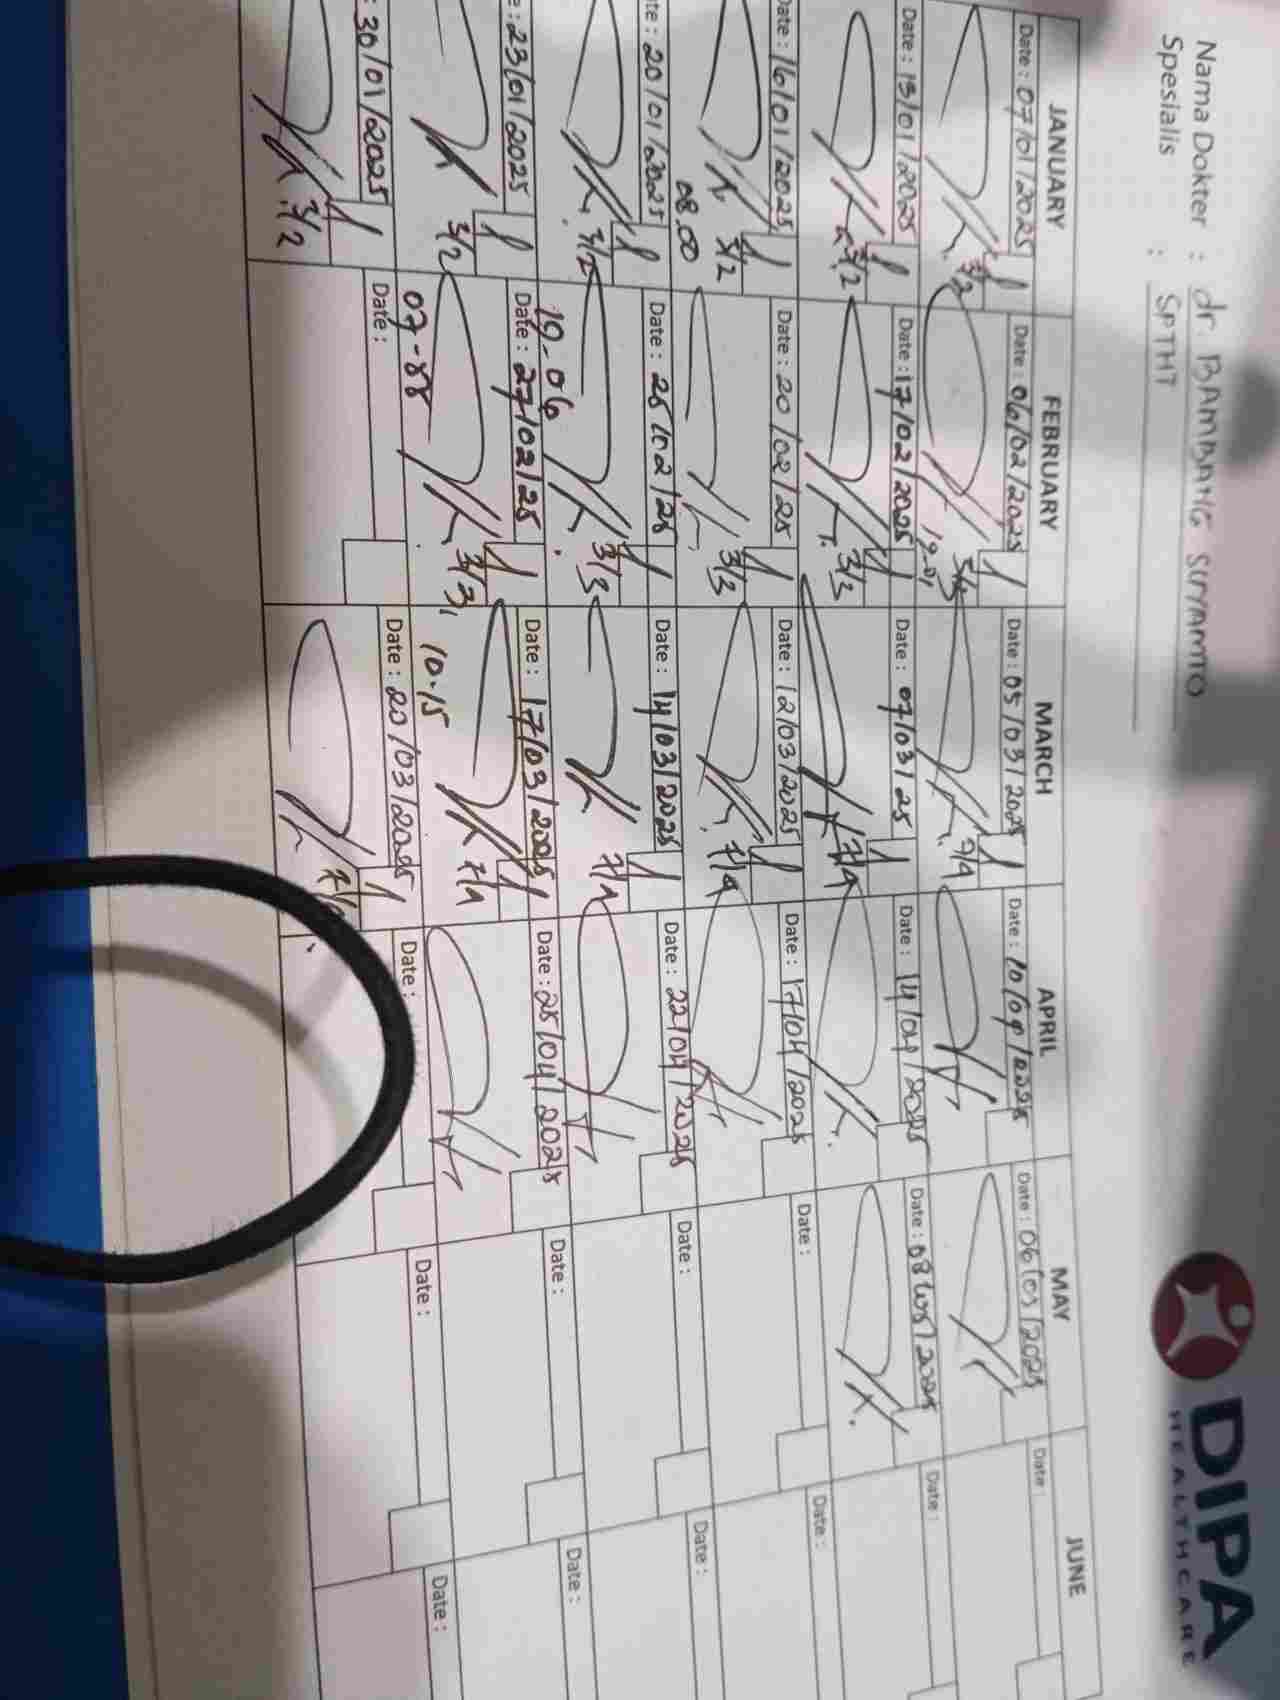 DIPA
HEALTHCARE
Nama Dokter : dr. BAMBANG SUYAMTO
Spesialis : SPTHT
JANUARY FEBRUARY MARCH APRIL MAY JUNE
Date : 07/01/2025 Date : 06/02/2025 Date : 05/03/2025 Date : 10/04/2025 Date : 06/05/2025 Date
3/2 19-01 3/3 7/4
Date : 13/01/2025 Date : 17/02/2025 Date : 07/03/25 Date : 14/04/2025 Date : 08/05/2025 Date :
3/2 3/3 7/4
Date : 16/01/2025 Date : 20/02/25 Date : 12/03/2025 Date : 17/04/2025 Date : Date :
3/2 3/3 7/4
08.00
te : 20/01/2025 Date : 25/02/25 Date : 14/03/2025 Date : 22/04/2025 Date : Date :
3/2 3/3 7/4
19-06
e : 23/01/2025 Date : 27/02/25 Date : 17/03/2025 Date : 25/04/2025 Date : Date :
3/2 3/3 10.15 7/4
07-58
: 30/01/2025 Date : Date : 20/03/2025 Date : Date : Date :
3/2